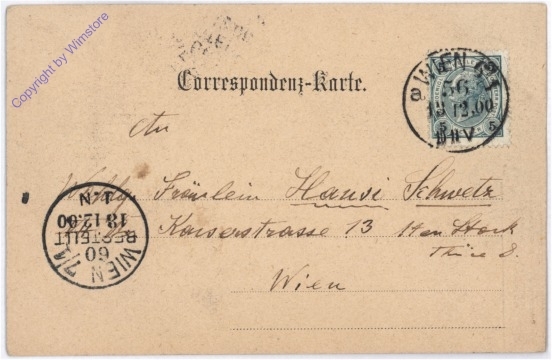 Copyright by Wimstore
Correspondenz-Karte.
An
WIEN
56
13 12.00
5 5
Fräulein Hansi Schwetz
Kaiserstrasse 13 Stock
Thüre 8.
Wien
WIEN 7/1
60
BESTELLT
13.12.00
N.T.